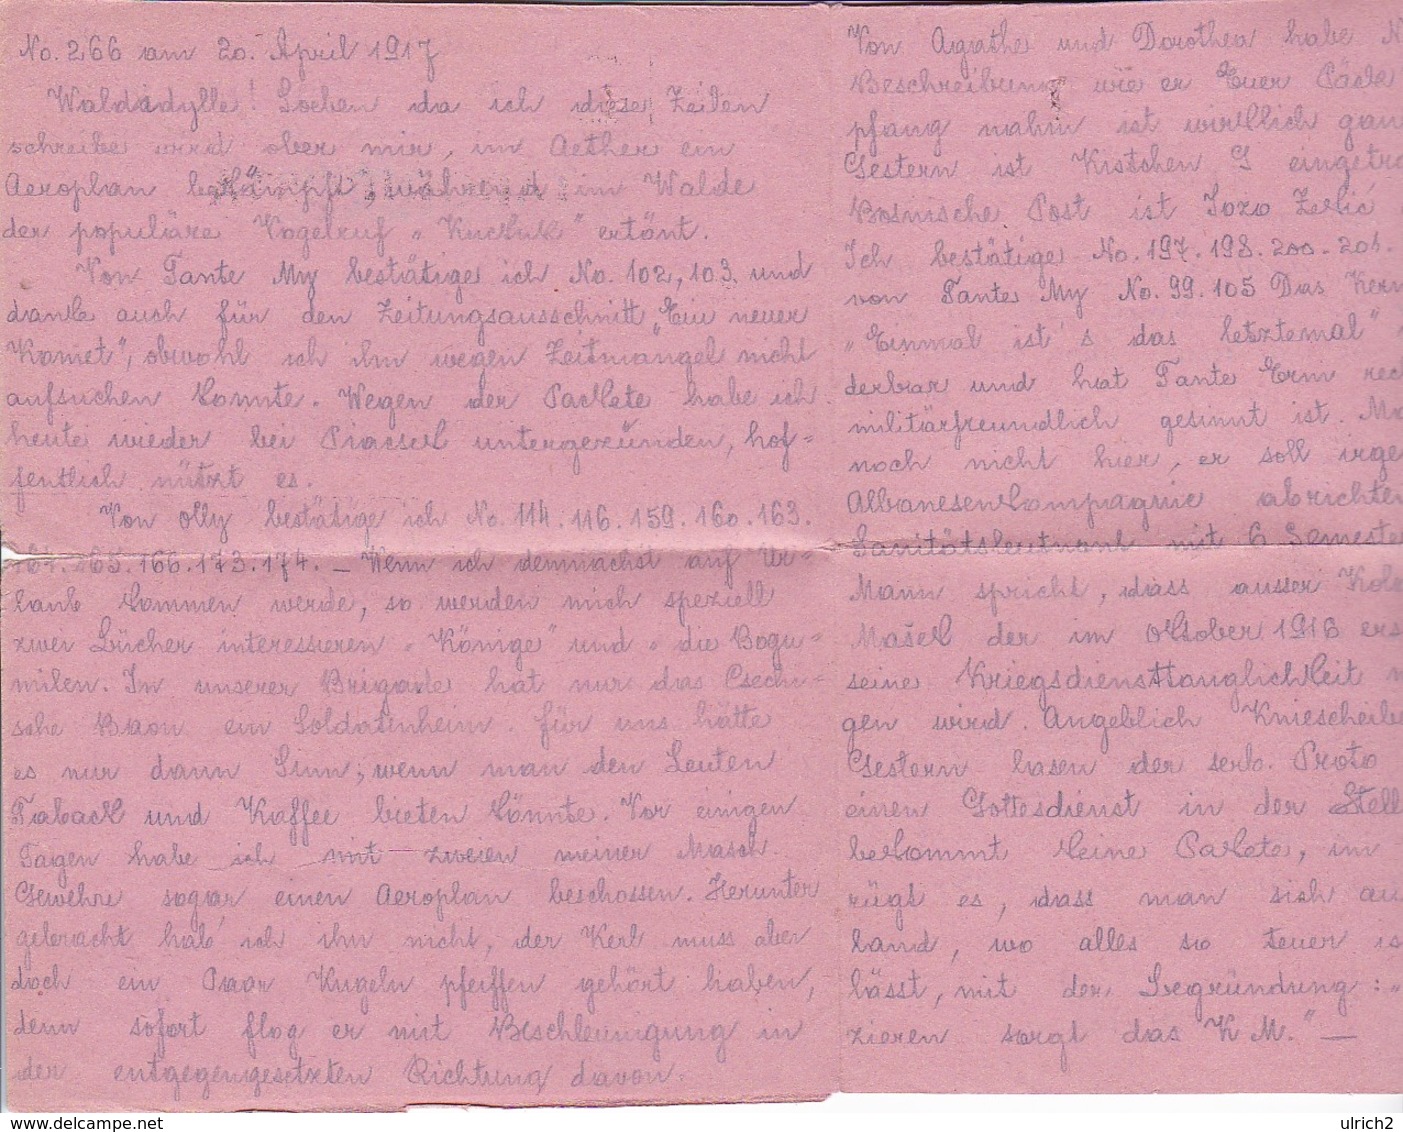 No. 266 am 20. April 1917
Waldidylle! Soeben da ich diese Zeilen
schreibe wird ober mir, im Aether ein
Aeroplan bekämpft, während im Walde
der populäre Vogelruf „Kuckuk" ertönt.
Von Tante My bestätige ich No. 102, 103. und
danke auch für den Zeitungsausschnitt „Ein neuer
Komet", obwohl ich ihn wegen Zeitmangel nicht
aufsuchen konnte. Wegen der Packete habe ich
heute wieder bei untergezünden, hof=
fentlich nützt es.
Von Olly bestätige ich No. 114. 116. 159. 160. 163.
164. 165. 166. 173. 174. — Wenn ich demnächst auf Ur-
laub kommen werde, so werden mich speziell
zwei Bücher interessieren „Könige" und „die Bogu=
milen. In unserer Brigade hat nur das Csechi-
sche Baon ein Soldatenheim. Für uns hätte
es nur dann Sinn, wenn man den Leuten
Taback und Kaffee bieten könnte. Vor einigen
Tagen habe ich mit zweien meiner Masch.
Gewehre sogar einen Aeroplan beschossen. Herunter
gebracht hab' ich ihn nicht, der Kerl muss aber
doch ein Paar Kugeln pfeiffen gehört haben,
denn sofort flog er mit Beschleunigung in
der entgegengesetzten Richtung davon.
Von Agathe und Dorothea habe N
Beschreibung wie er Euer Päck
pfang nahm ist wirklich gan
Gestern ist Kistchen I eingetro
Bosnische Post ist Jozo Zelić
Ich bestätige No. 197. 198. 200. 201.
von Tante My No. 99. 105 Das Kern
„Einmal ist's das letztemal"
derbar und hat Tante Erm rec
militärfreundlich gesinnt ist. Ma
noch nicht hier, er soll irge
Albanesenkompagnie abrichten
Sanitätsleutnant mit 6 Semeste
Mann spricht, dass ausser Kol
Mašek der im Oktober 1916 ers
seine Kriegsdiensttauglichkeit
gen wird. Angeblich Kniescheibe
Gestern lasen der serb. Proto
einen Gottesdienst in der Stell
bekommt keine Pakete, im
zügt es, dass man sich au
land, wo alles so teuer is
lässt, mit der Begründung: „
zieren sorgt das K M." —
ulrich2